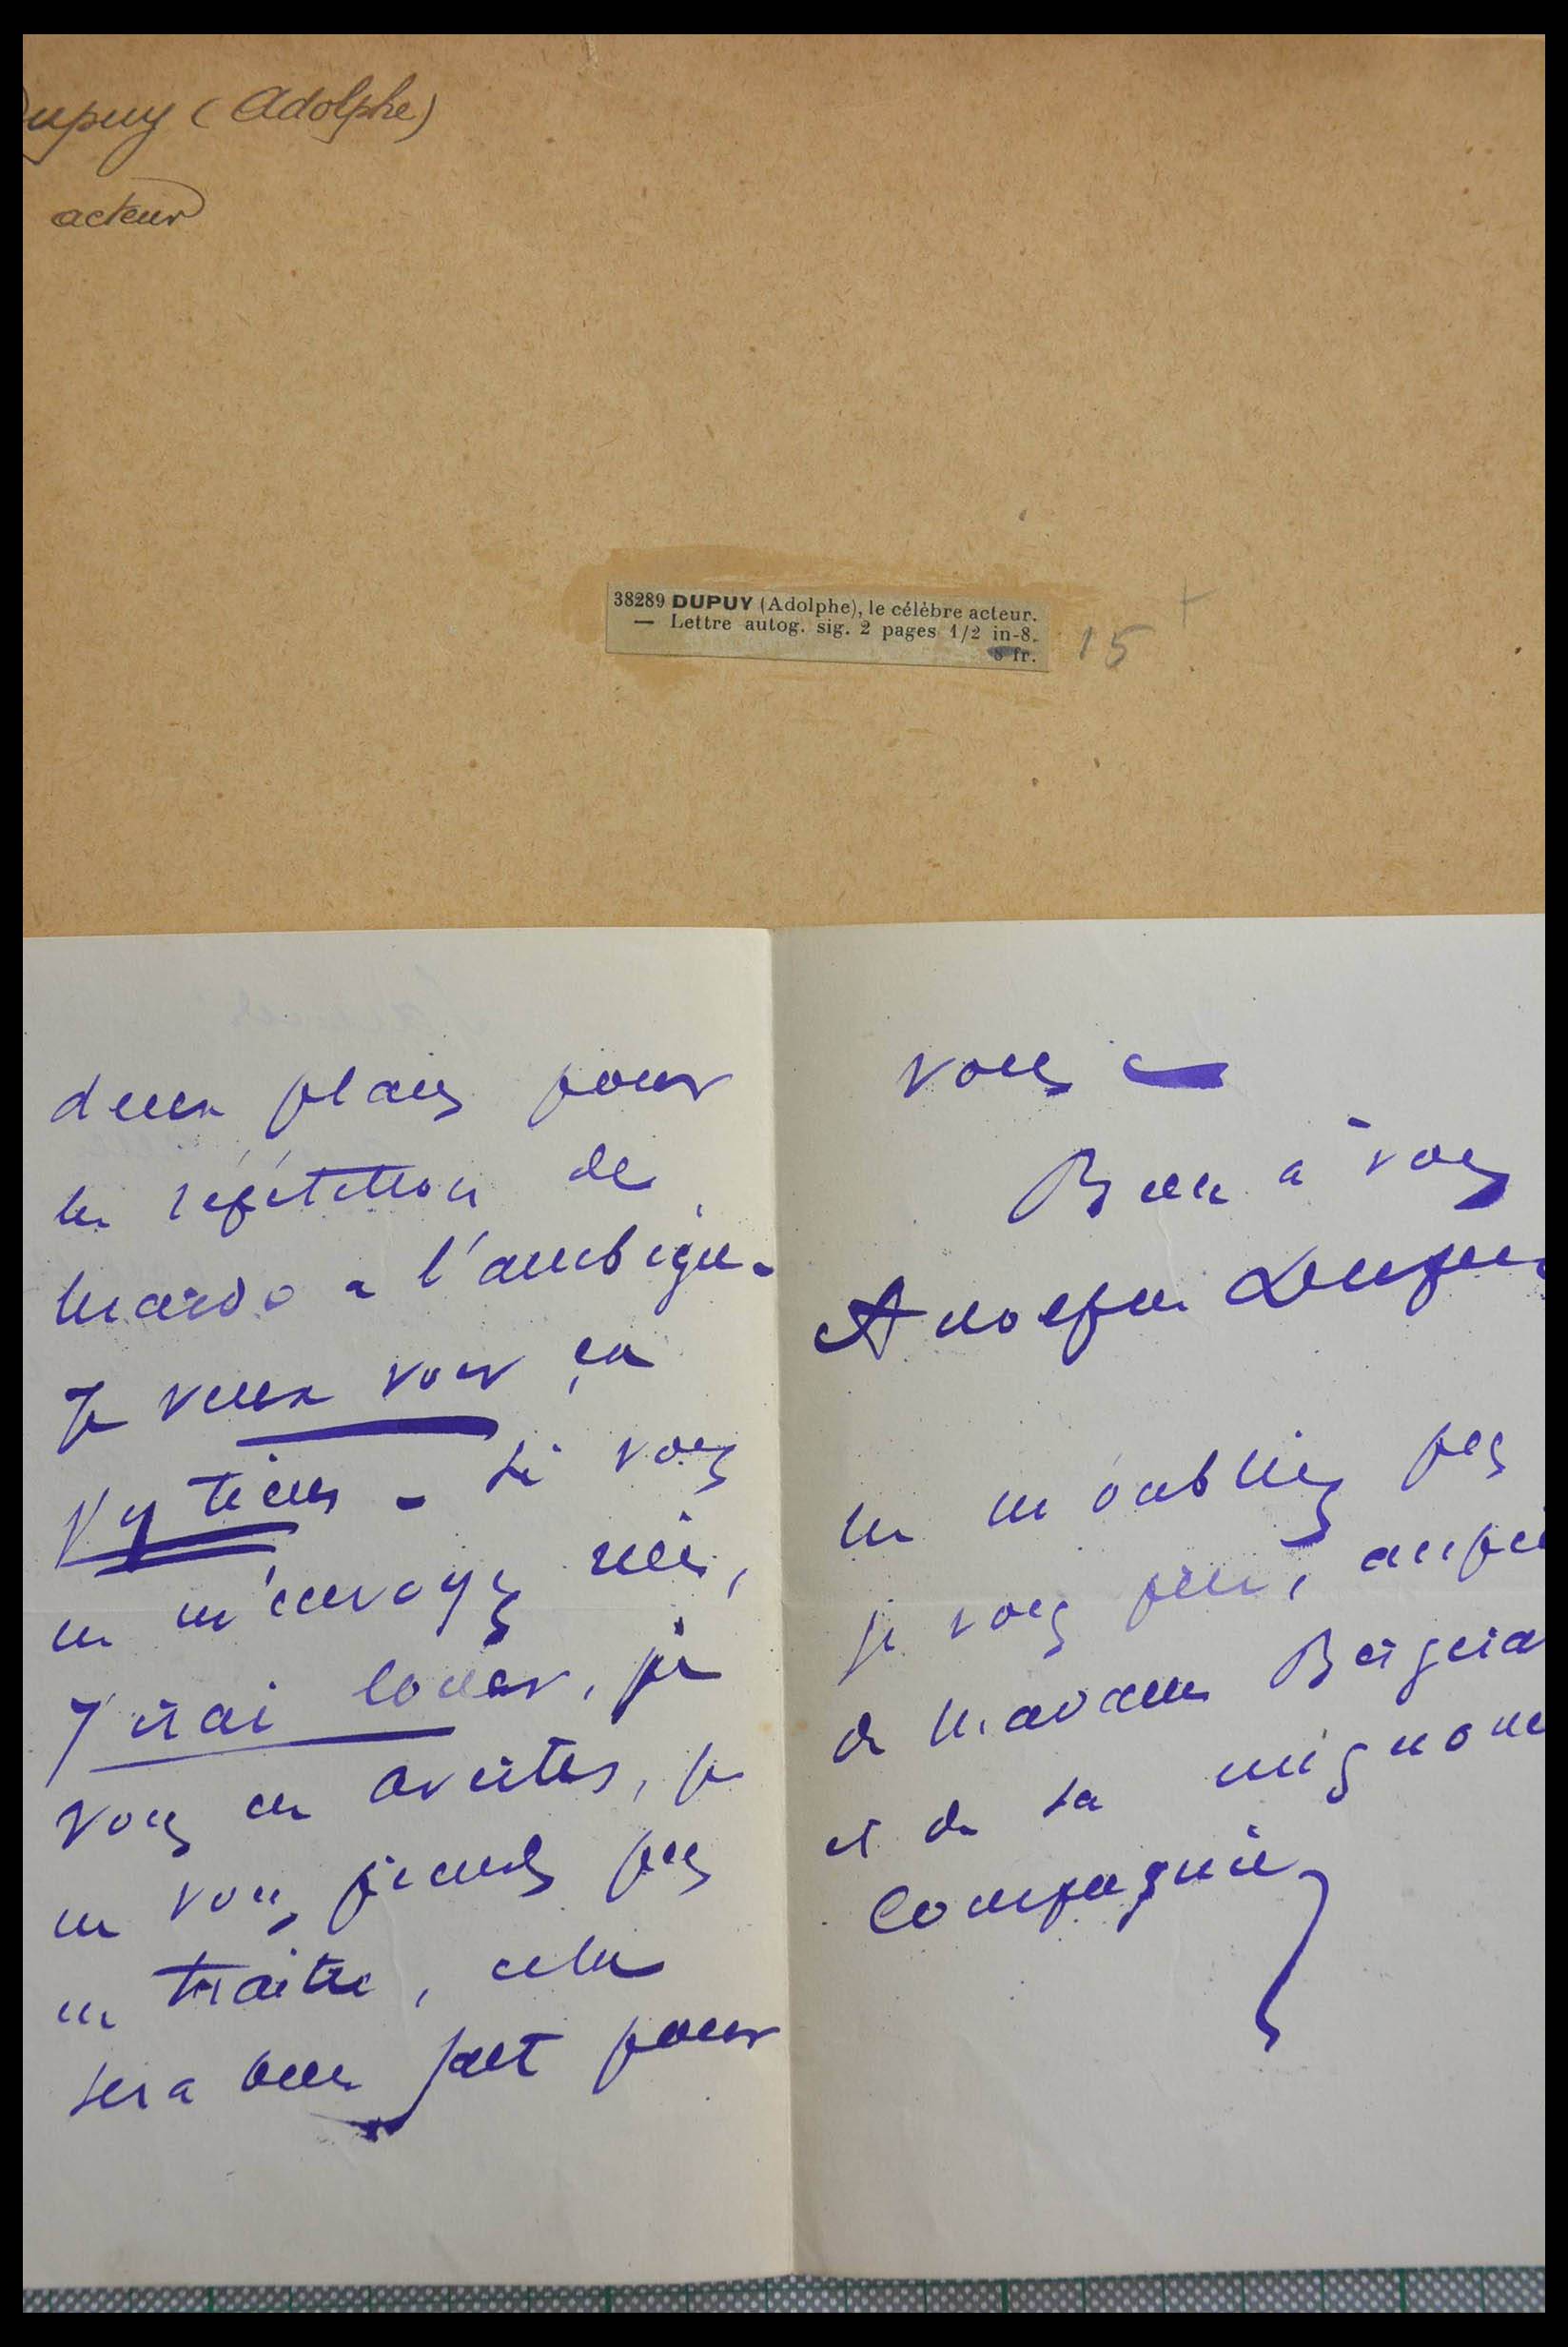 Dupuy (Adolphe)
acteur
38289 DUPUY (Adolphe), le célèbre acteur.
— Lettre autog. sig. 2 pages 1/2 in-8.
8 fr.
15
deux places pour
la répétition de
mardi à l'ambigu.
Je veux voir ça
j'y tiens - si vous
ne m'envoyez rien,
J'irai louer, je
vous en avertis, je
ne vous prends pas
en traître, cela
sera bien fait pour
vous
Bien à vous
Adolphe Dupuy
ne m'oubliez pas
je vous prie, auprès
de madame Bergera
et de sa mignone
Compagnie